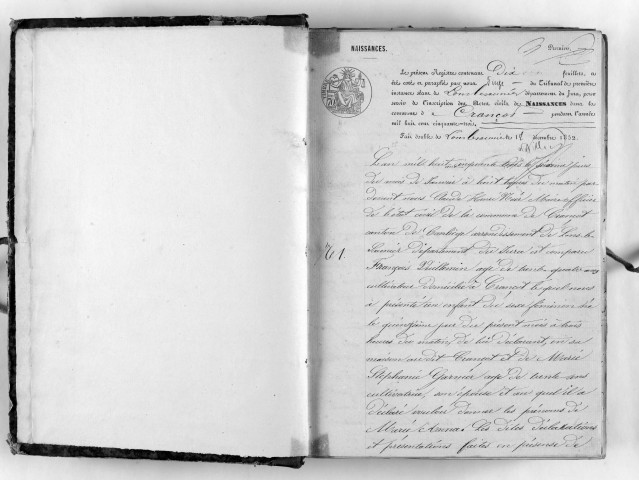 NAISSANCES.
Premier
Le présent Registre contenant Dix feuillets, a
été coté et paraphé par nous Juge du Tribunal de première
instance séant de Lons-le-Saunier département du Jura, pour
servir de l'inscription des Actes civils de NAISSANCES dans la
commune de Crançot pendant l'année
mil huit cent cinquante-trois.
Fait double de Lons-le-Saunier le 18 décembre 1852.
L'an mil huit cinquante trois le jour
du mois de Janvier à huit heures du matin par
devant nous Claude Henri Maire officier
de l'état civil de la commune de Crançot
canton de Conliège arrondissement de Lons-le
Saunier département du Jura est comparu
N.º 1.
François Vuillemin agé de trente quatre ans
cultivateur domicilié à Crançot lequel nous
a présenté un enfant du sexe féminin né
le quinzième jour du présent mois à trois
heures du matin, de lui déclarant, en sa
maison audit Crançot et de Marie
Stéphanie Garnier agé de trente ans
cultivatrice, son épouse et au quel il a
déclaré vouloir donner les prénoms de
Marie Anna. Les dites déclarations
et présentations faites en présence de